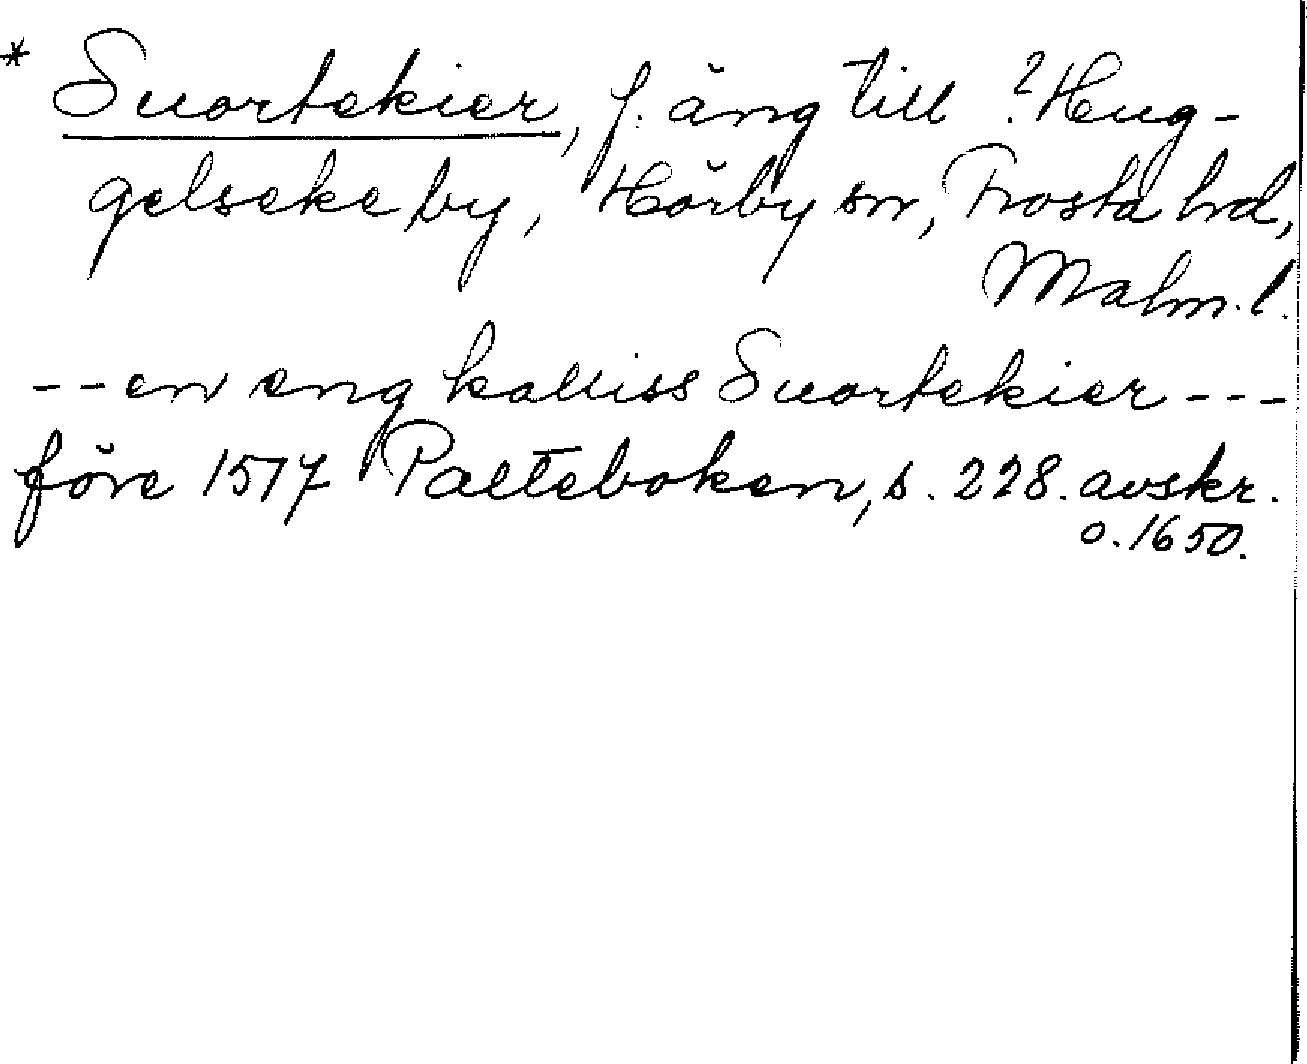 * Suortekier, f. äng till ? Hug-
gelseke by, Hörby sn, Frosta hd,
Malm. l.
-- en eng kalliss Suortekier ---
före 1517 Palteboken, s. 228. avskr.
o. 1650.